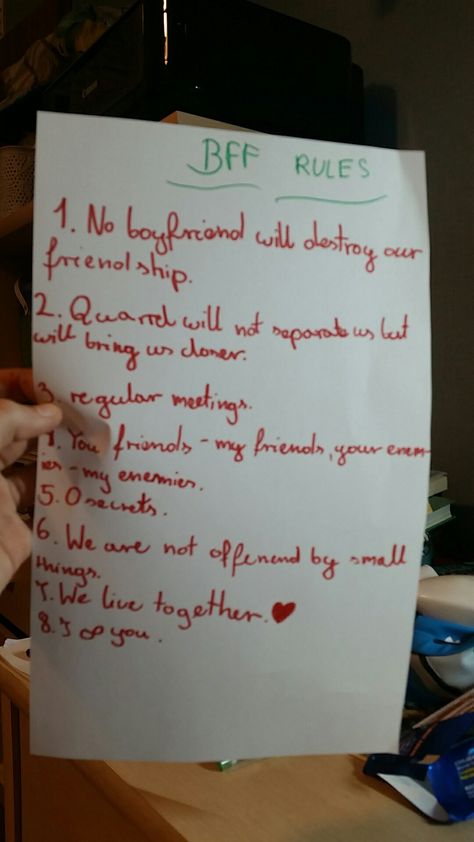 BFF RULES
1. No boyfriend will destroy our
friendship.
2. Quarrel will not separate us but
will bring us closer.
3. regular meetings.
4. You friends - my friends, your enem-
ies - my enemies.
5. 0 secrets.
6. We are not offenend by small
things.
7. We live together. ♥
8. I ∞ you.